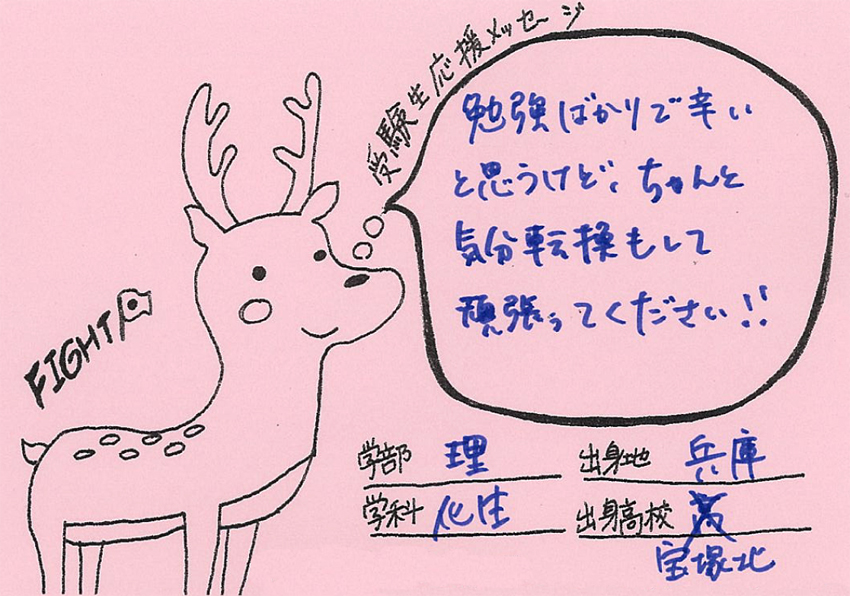 受験生応援メッセージ
勉強ばかりで辛い
と思うけど、ちゃんと
気分転換もして
頑張ってください!!
FIGHT
学部 理
出身地 兵庫
学科 化生
出身高校
宝塚北